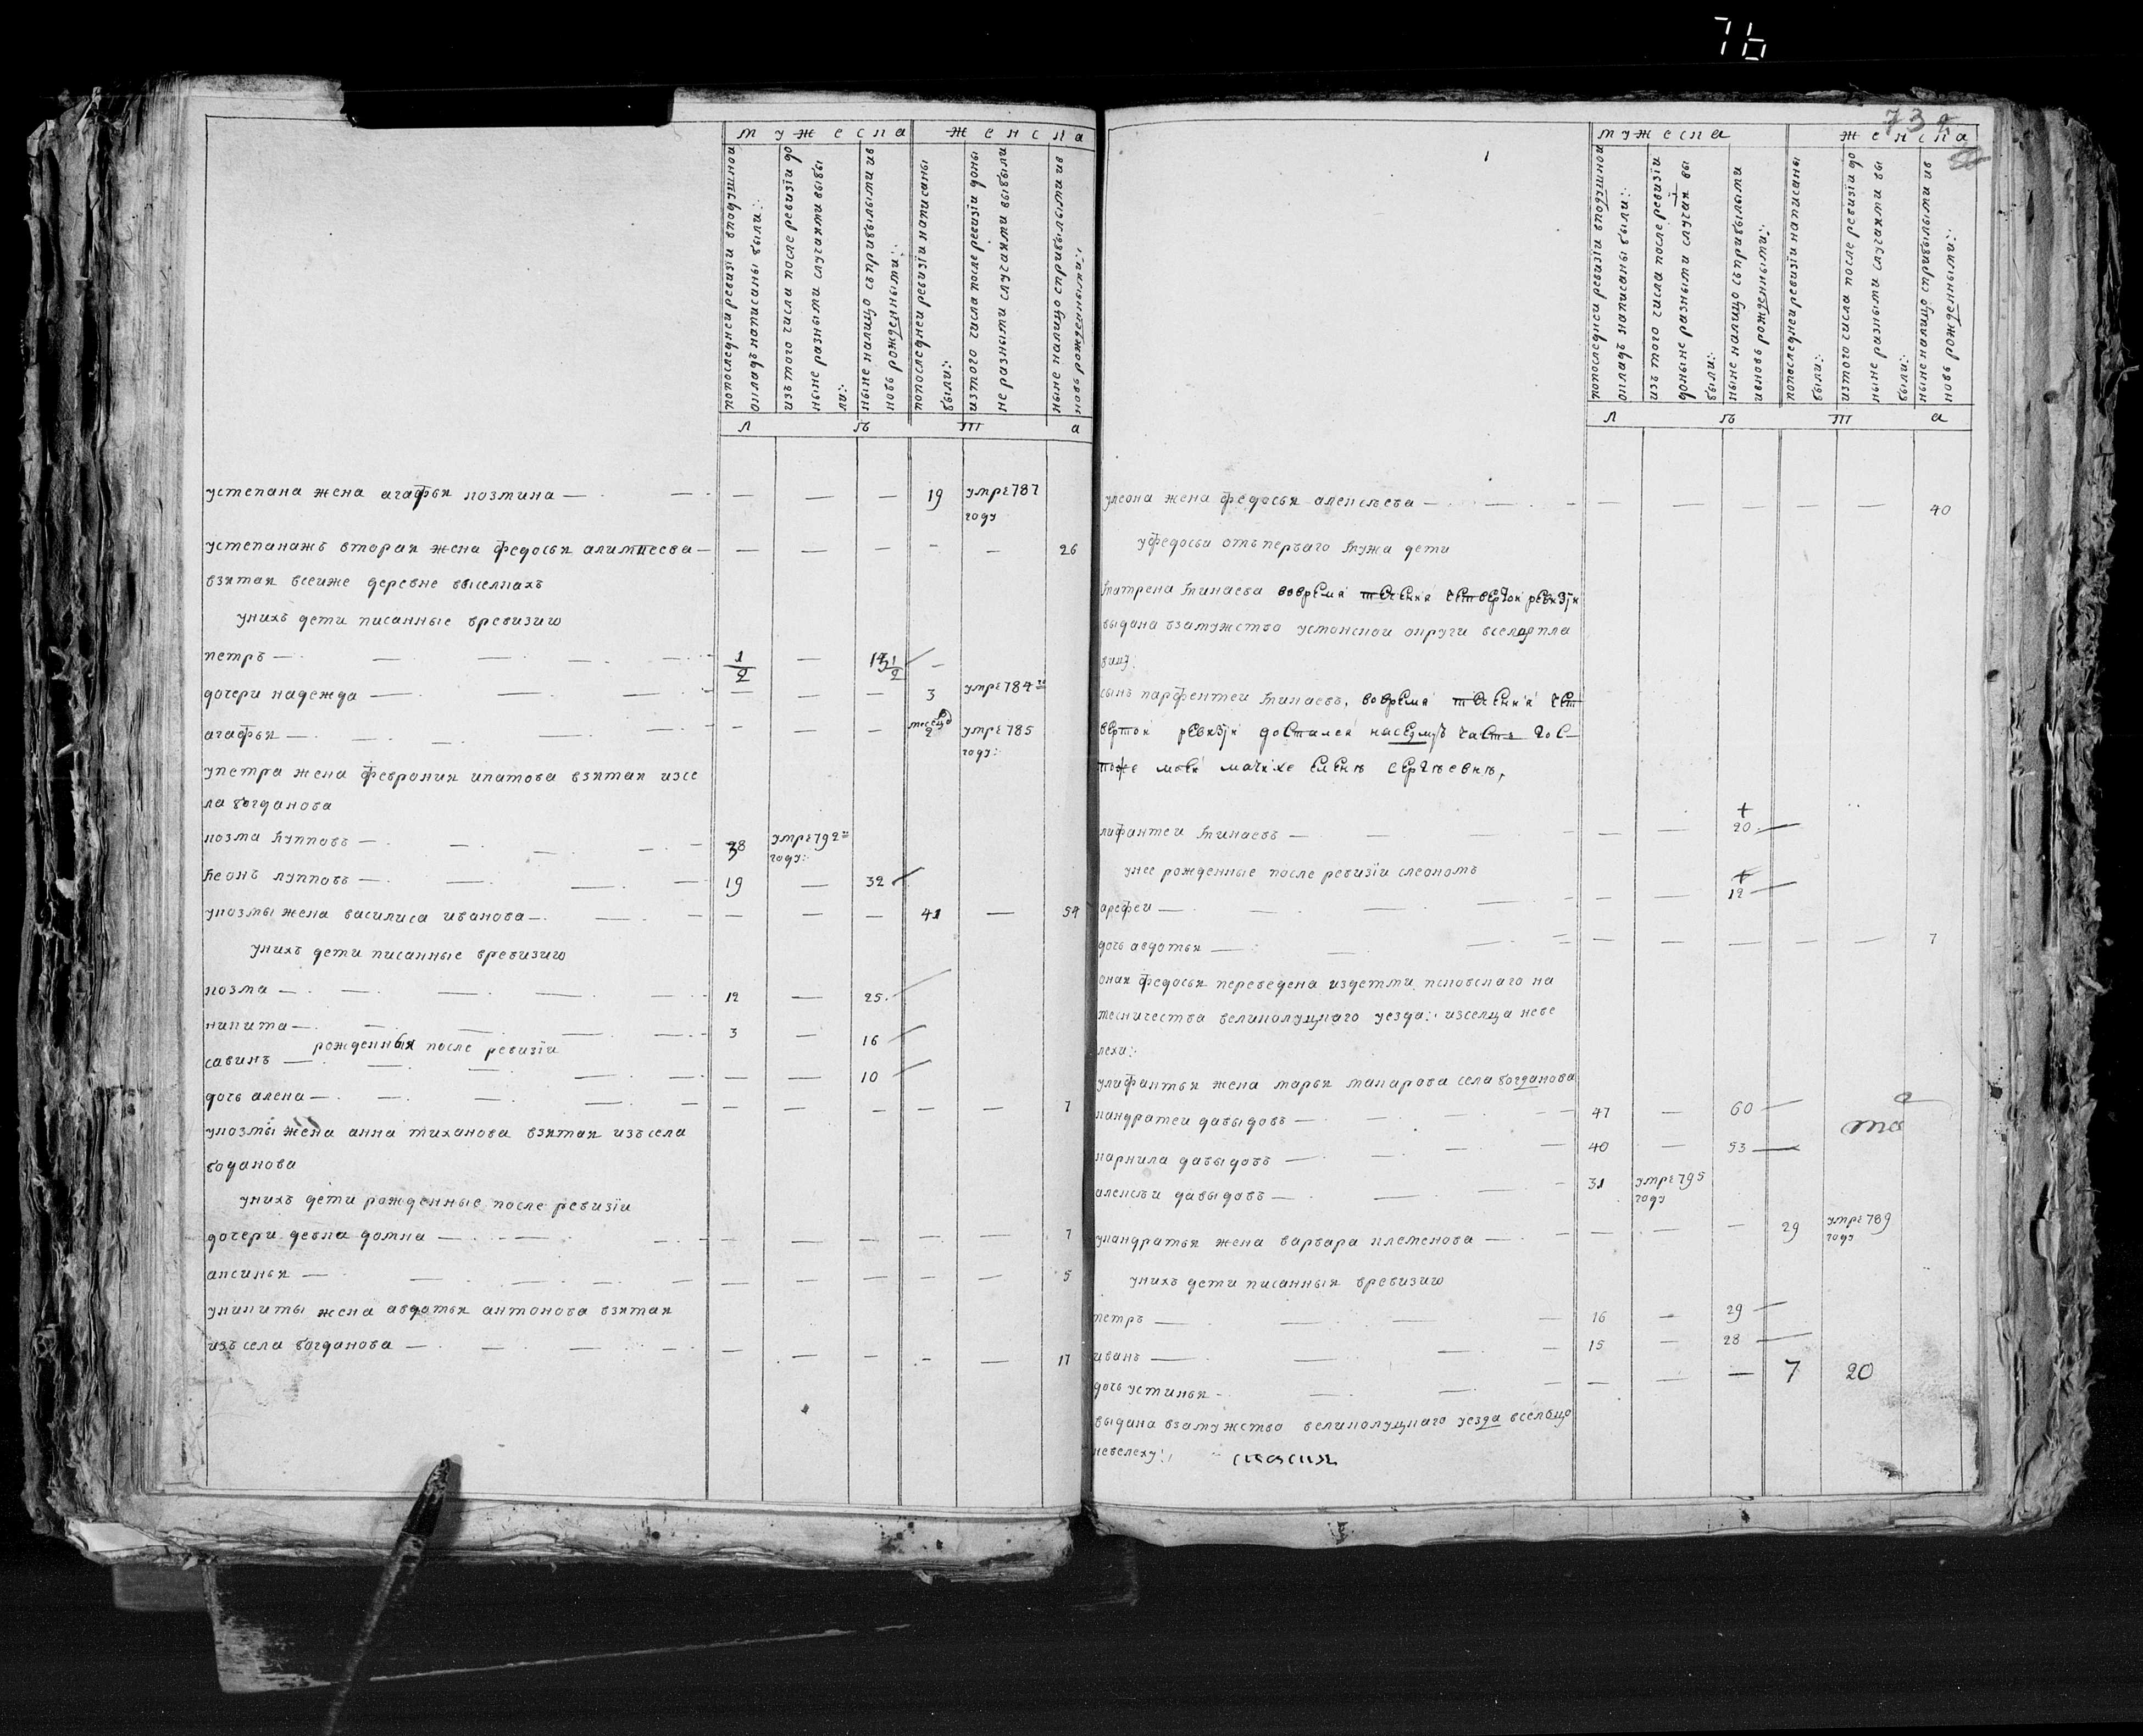 7b
мужеска женска
попоследней ревизïи вподушной окладъ написаны были:
изътого числа после ревизïи до ныне разными случаями выбыли:
ныне налицо съприбылыми ивновь рожденными:
попоследней ревизïи написаны были:
изтого числа после ревизïи доныне разными случаями выбыли
ныне налицо сприбылыми ивновь рожденными:
л ѣ т а
устепана жена агафья козмина — — — — 19 умре 787 году
устепанажъ вторая жена федосья алимпеева — — — — — — 26
взятая всеиже деревне выселкахъ
унихъ дети писанные вревизию
петръ — 1/2 —
дочери надежда — — — — 3 умре 784
агафья — — — — умре 785 году:
упетра жена феврония ипатова взятая изсе
ла богданова
козма лупповъ — 38 умре 792 году:
леонъ лупповъ — 19 — 32
укозмы жена василиса иванова — — — — 41 — 54
унихъ дети писанные вревизию
козма — 12 — 25
никита — 3 — 16
рожденныя после ревизïи
савинъ — — — 10
дочь алена — — — — — — 7
укозмы жена анна тиханова взятая изъсела
богданова
унихъ дети рожденные после ревизïи
дочери девка домна — — — — — — 7
аксинья — — — — — — 5
уникиты жена авдотья антонова взятая
изъ села богданова — — — — — — 17
73
мужеска женска
попоследнеи ревизïи вподушной окладъ написаны были:
изъ того числа после ревизïи доныне разными случаи выбыли:
ныне налицо съприбылыми ивновь рожденными:
попоследней ревизïи написаны были:
изтого числа после ревизïи до ныне разными случаями выбыли:
ныне налицо сприбылыми ивновь рожденными:
л ѣ т а
улеона жена федосья алексеева — — — — — — 40
уфедосьи отъ перваго мужа дети
матрена минаева вовремя течения четвертои ревизïи
выдана взамужство устюжской округи
сынъ парфентеи минаевъ, вовремя течения чет
вертои ревизïи достался часть гос
поже моеи мачихе Еленъ сергъевнъ,
лифантеи минаевъ — — — 20
унее рожденные после ревизïи слеономъ
арефеи — — — 12
дочь авдотья — — — — — — 7
оная федосья переведена издетми псковскаго на
месничества великолуцкаго уезда: изселца неве
лехи:
улифантья жена марья макарова села богданова
кандратеи давыдовъ — 47 — 60
карнила давыдовъ — 40 — 53
алексеи давыдовъ — 31 умре 795 году
укандратья жена варвара клеменова — — — — 29 умре 789 году
унихъ дети писанныя вревизию
петръ — 16 — 29
иванъ — 15 — 28
дочь устинья — — — — 7 20
выдана взамужство великолуцкаго уезда вселцо
невелеху: